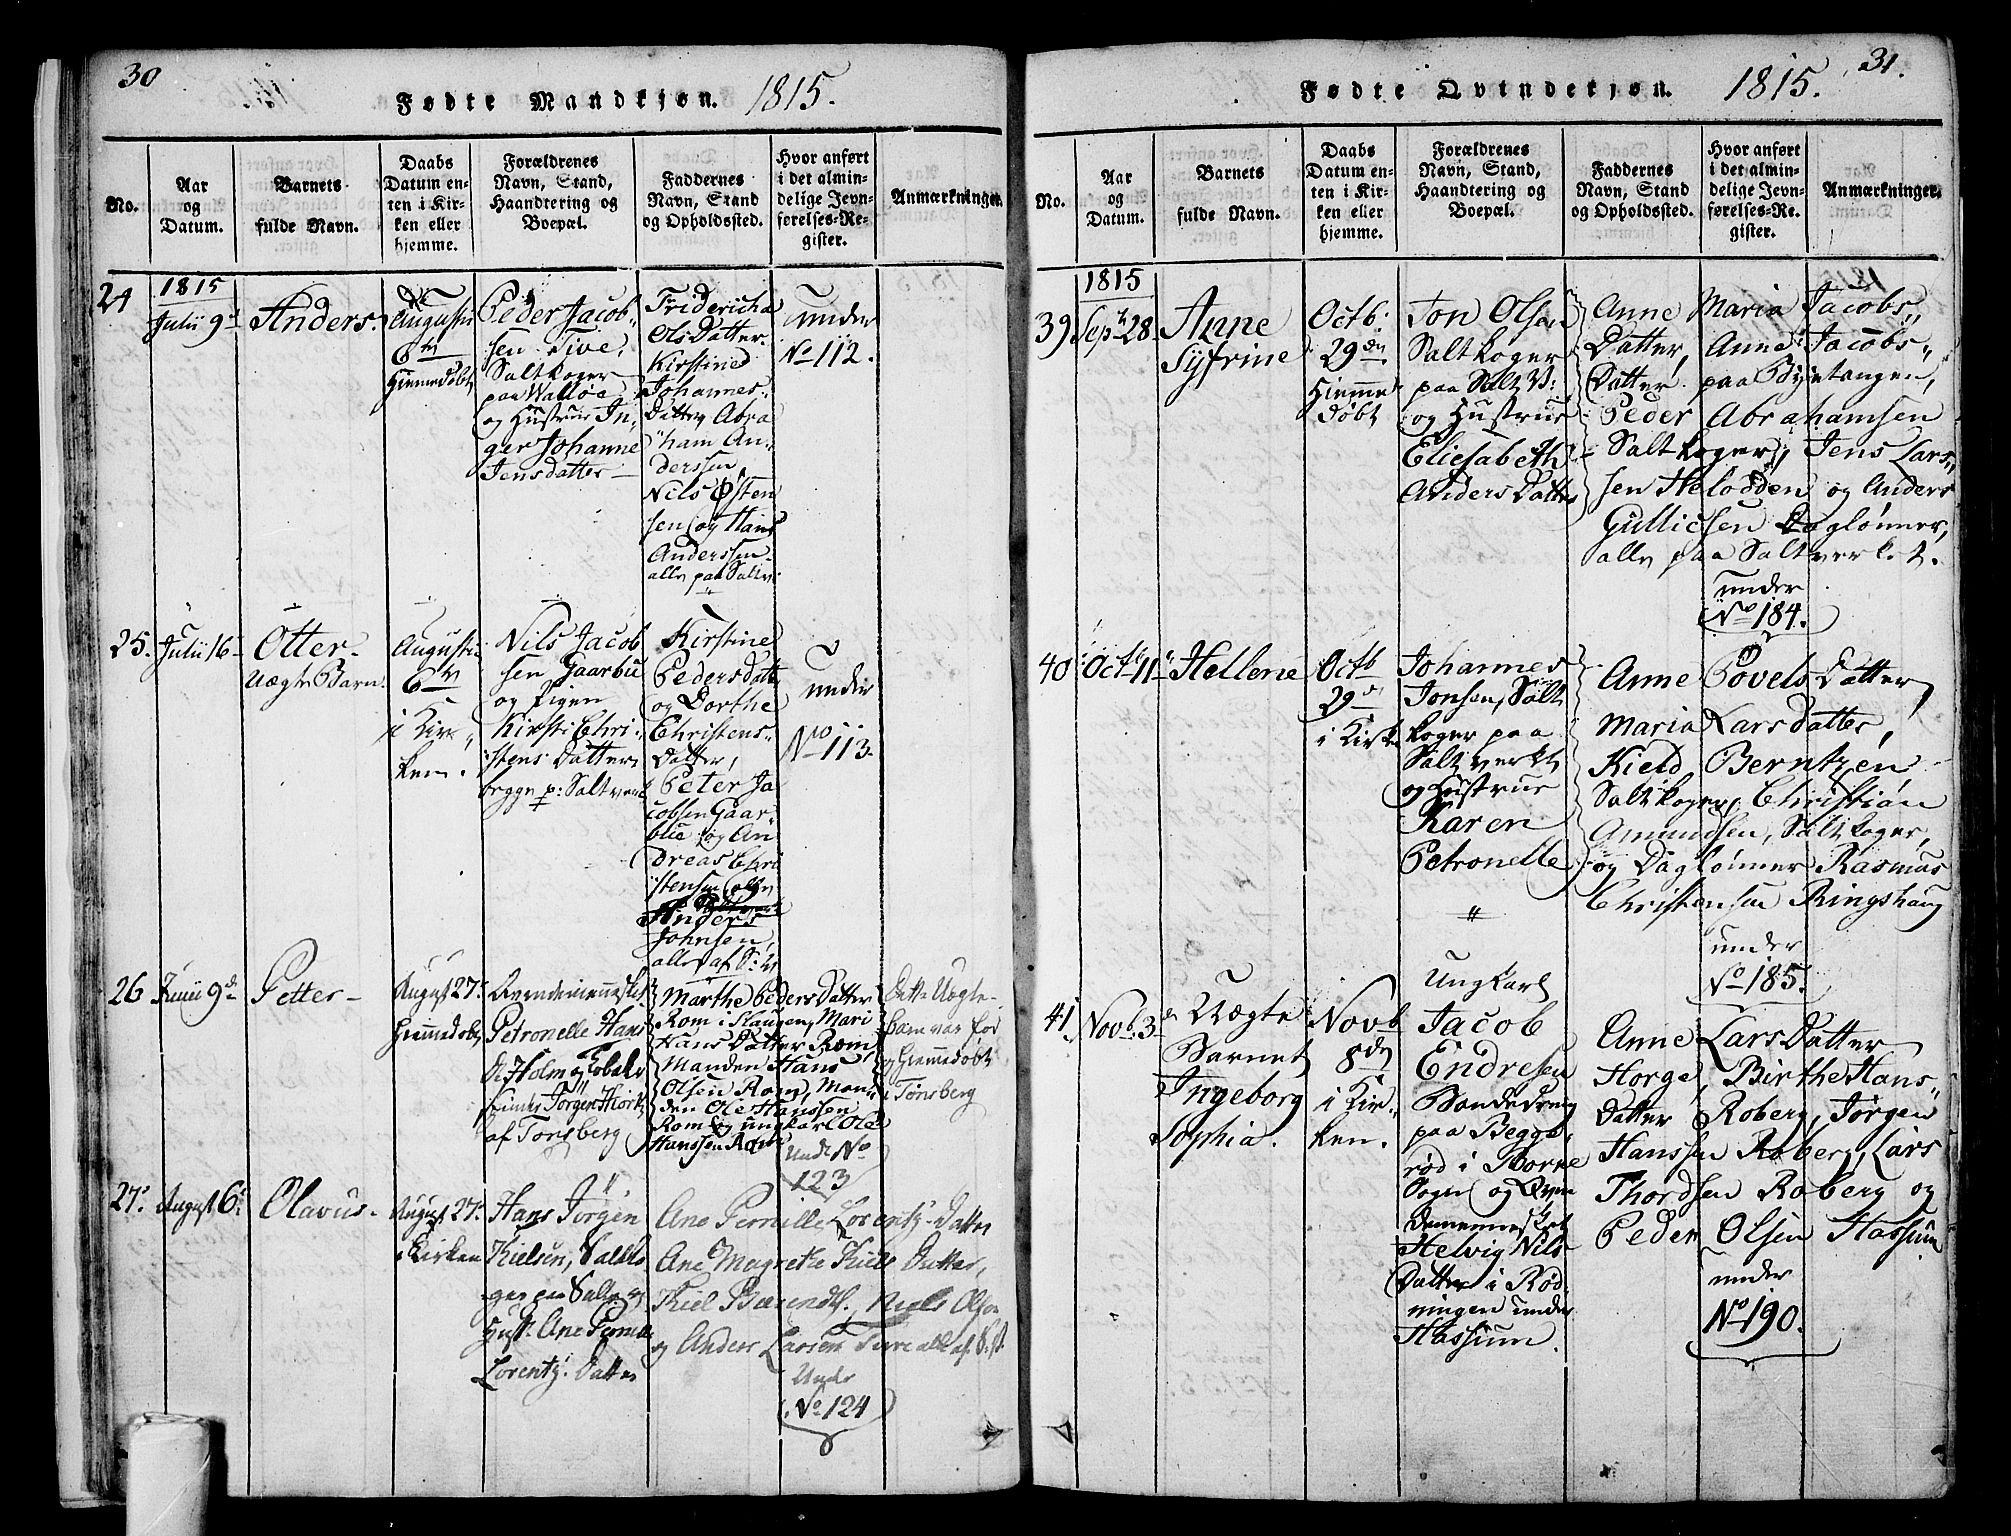 30
Fødte Mandkjøn. 1815.
No.
Aar
og
Datum.
Barnets
fulde Navn.
Daabs
Datum en-
ten i Kir-
ken eller
hjemme.
Forældrenes
Navn, Stand,
Haandtering og
Boepæl.
Faddernes
Navn, Stand
og Opholdssted.
Hvor anført
i det almin-
delige Jevn-
førelses-Re-
gister.
Anmærkninger.
24
1815
Julii 9d
Anders.
Augustii
6te
Hiemmedøbt
Peder Jacob-
sen Tive,
Saltkoger
paa Walløe
og Hustrue In-
ger Johanne
Jensdatter
Fridericha
Ols Datter
Kirstine
Johannes-
Datter, Abra
ham An-
derssen,
Nils Østen
sen og Hans
Anderssen
alle paa Saltv:
under
No 112.
25.
Julii 16
Otter
Uægte Barn.
Augustii
6te
i Kir-
ken.
Nils Jacob
sen Gaarbu
og Pigen
Kirsti Chri-
stens Datter
begge p: Saltverk
Kirstine
Peders Datter
og Dorthe
Christens-
Datter,
Peter Ja
cobsen Gaar-
bue og An
dreas Chri
stensen alle
Anders
Johnsen,
alle af S: V
under
No 113.
26
Junii 9d
Petter
August 27.
Hiemmedøbt
Petronelle Hans
D. Holm og
Jørgen Hiort
af Tønsberg
Marthe Peders Datter
Rom i Slaugen, Mari
Hans Datter Rom,
Manden Hans
Olsen Rom, Man-
den Ole Hanssen
Rom og ungkarl Ole
Hanssen Rom
Under No
123
Dette Uægte
Barn var fød
og Hiemmedøbt
i Tønsberg
27.
August 6.
Olavus
August 27.
i Kirken
Hans Jørgen
Kielsen, Saltko
ger paa Saltv. og
Hust. Ane Pernille
Lorentz. Datter
Ane Pernille Lorentz-Datter
Ane Magrethe Kiels Datter,
Kiel Bærendts., Niels Olsen
og Anders Larsen Tive alle af S. V.
Under
No 124
31.
Fødte Qvindekjøn. 1815.
No.
Aar
og
Datum.
Barnets
fulde Navn.
Daabs
Datum en-
ten i Kir-
ken eller
hjemme.
Forældrenes
Navn, Stand,
Haandtering og
Boepæl.
Faddernes
Navn, Stand
og Opholdssted.
Hvor anført
i det almin-
delige Jevn-
førelses-Re-
gister.
Anmærkninger.
39
1815
Sept 28.
Anne
Syfrine
Octb:
29de
Hiemme
døbt
Jon Olsen
Saltkoger
paa Salt V:
og Hustrue
Eliesabeth
Anders Datter
Anne Maria Jacobs-
Datter, Anne Jacobs-
Datter paa Byetangen,
Peder Abrahamsen
Saltkoger, Jens Lars-
sen Helodden og Anders
Gullicsen Daglønner,
alle paa Saltverket.
under
No 184.
40
Octb 11
Hellene
Octb
29de
i Kirk
Johannes
Jonsen, Salt
koger paa
Saltverkt
og Hustrue
Karen
Petronelle
Anne Povels Datter,
Maria Lars Datter,
Kield Berntzen
Saltkoger, Christian
Amundsen, Saltkoger,
og Daglønner Rasmus
Christensen Ringshaug
under
No 185.
41
Novb. 3
Uægte
Barnet
Ingeborg
Sophia.
Novb
8de
i Kir-
ken.
Ungkarl
Jacob
Endresen
Bondedreng
paa Begge-
rød i Borre
Sogn og Qvin
demennesket
Helvig Nils-
Datter i Rød
ningen under
Hassum.
Anne Lars Datter
Horge, Birthe Hans-
Datter Roberg, Jørgen
Hanssen Roberg, Lars
Thordsen Roberg og
Peder Olsen Hassum
under
No 190.